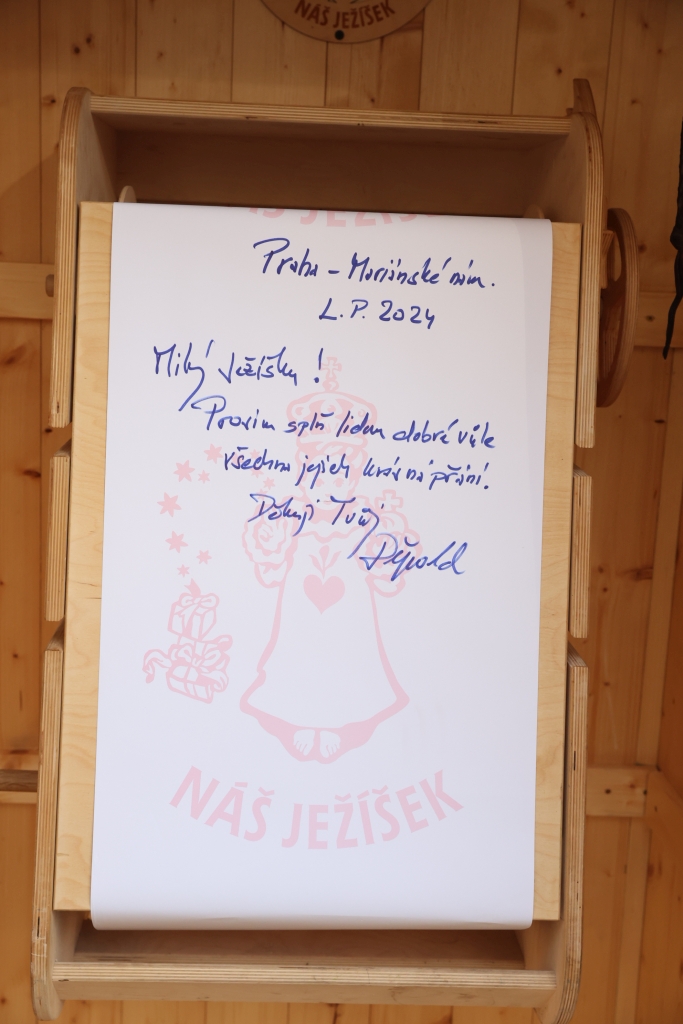 NÁŠ JEŽÍŠEK
NÁŠ JEŽÍŠEK
Praha – Mariánské nám.
L.P. 2024
Milý Ježíšku!
Prosím splň lidem dobré vůle
všechna jejich krásná přání.
Děkuji Tvůj
Děpold
NÁŠ JEŽÍŠEK